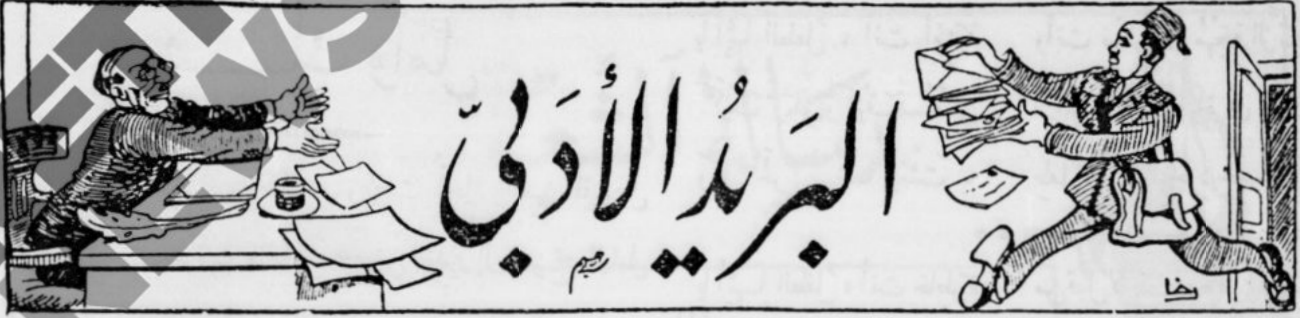 البَريُد الأَدَبىّ